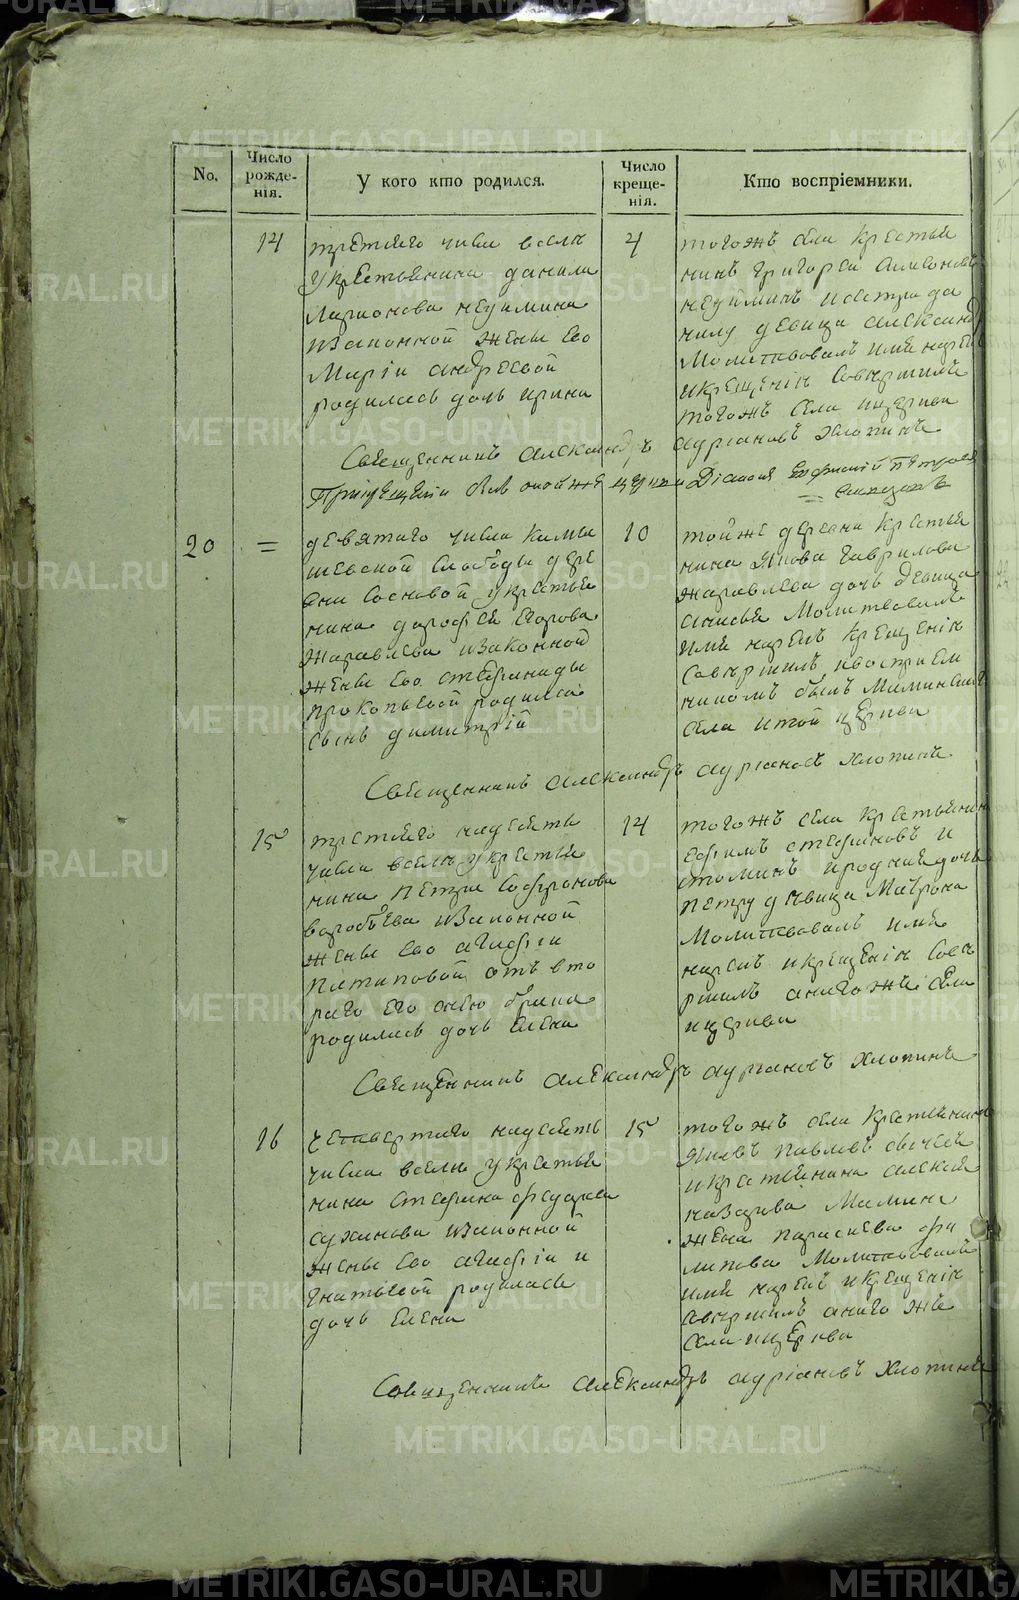 No.
Число рожде-нія.
У кого кто родился.
Число креще-нія.
Кто воспріемники.
14
третьяго числа всели
у крестьянина данила
Ларионова неуимина
изаконной жены его
Маріи андреевой
родилась дочь ирина
4
тогожъ села крестья
нинъ григореи
неуиминъ
нилу девица александра
Молитвовалъ имя нарекъ
икрещеніе Совершилъ
тогожъ села ицеркви
Священникъ александръ адріановъ хлопинъ
При крещеніи былъ тойже церкви Діаконъ
20
=
девятаго числа Камы
шевской Слободы дере
вни Сосновой у крестья
нина дарофея Егорова
Жаравлева изаконной
жены его стефаниды
прокопьевой родился
сынъ димитрій
10
тойже деревни крестья
нина Якова гаврилова
жаравлева дочь девица
анисья Молитвовалъ
имя нарекъ крещеніе
Совершилъ ивоспріем
никомъ былъ Маминскаго
села итой церкви
Священникъ александръ адріановъ хлопинъ
15
третьяго надесять
числа всели у крестья
нина петра Софронова
варобьева изаконной
жены его агафіи
потаповой отъ вто
раго его онею брака
родилась дочь Елена
14
тогожъ села крестьянинъ
Ефимъ стефановъ и
стоминъ и родная дочь
петру девица Матрона
Молитвовалъ имя
нарекъ икрещеніе Сове
ршилъ оногоже села
ицеркви
Священникъ александръ адріановъ хлопинъ
16
четвертаго надесять
числа всели у крестья
нина стефана федорова
суханова изаконной
жены его агафіи и
гнатьевой родилась
дочь Елена
15
тогожъ села крестьянинъ
Яковъ павловъ
икрестьянина алексея
назарова Мамина
жена параскева фи
липова Молитвовалъ
имя нарекъ икрещеніе
Совершилъ оного же
села ицеркви
Священникъ александръ адріановъ хлопинъ
METRIKI.GASO-URAL.RU